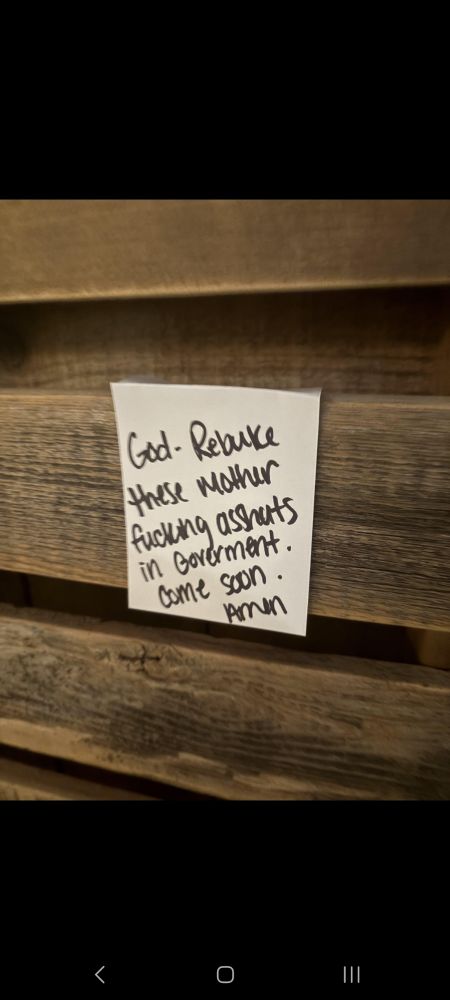 God - Rebuke
these Mother
fucking asshats
in Goverment.
Come soon.
Amen